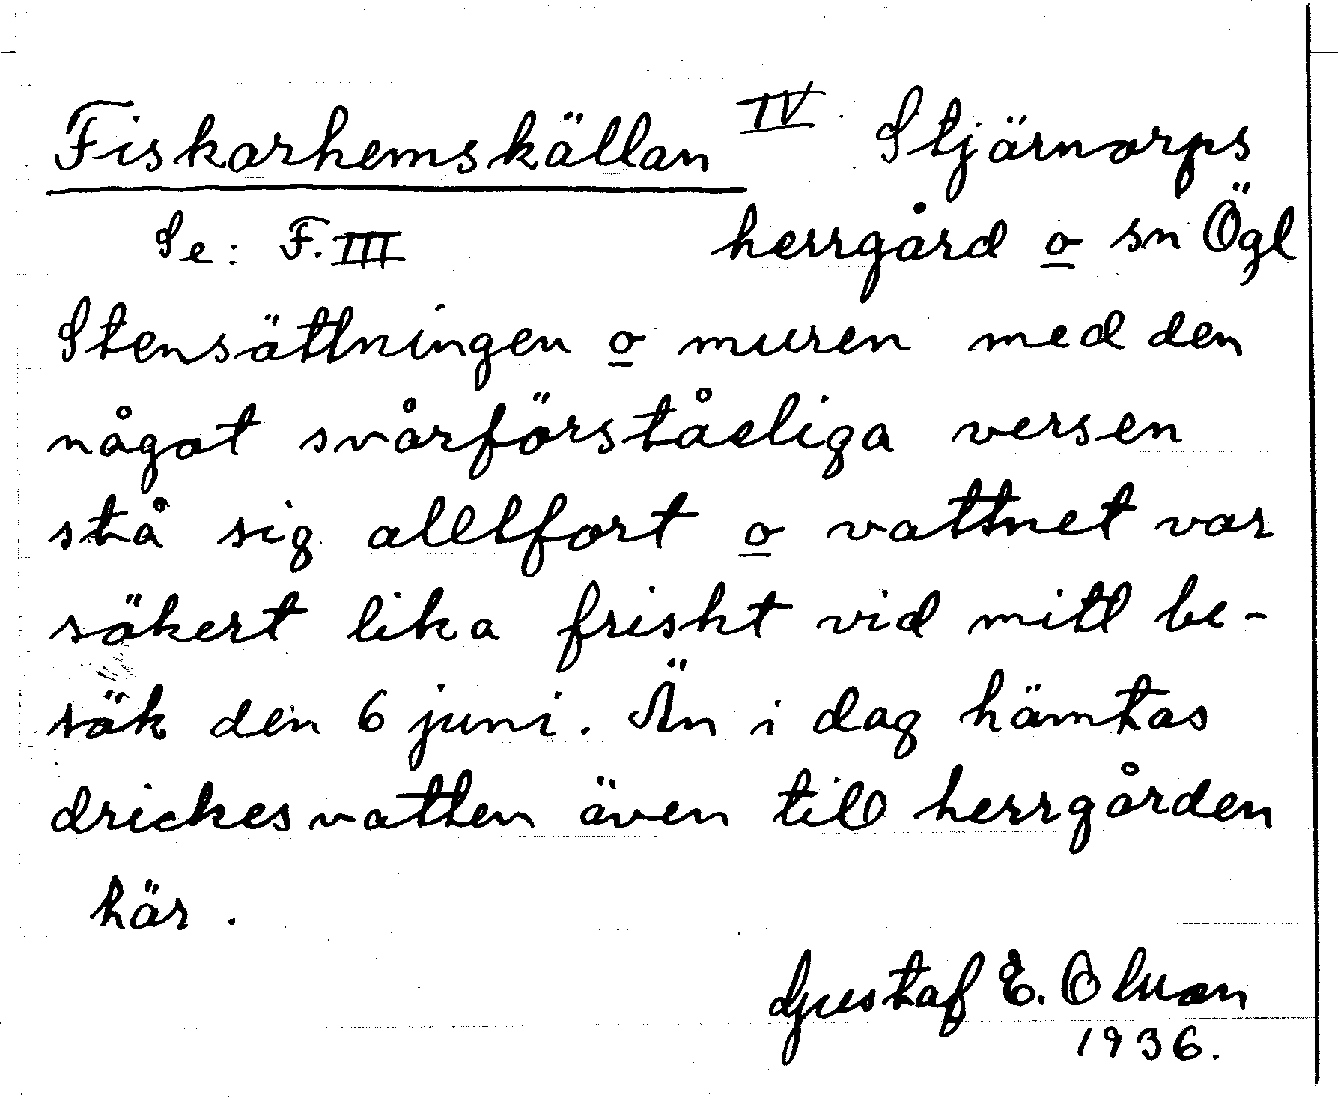 Fiskarhemskällan IV Stjärnorps
Se: F. III herrgård o sn Ögl
Stensättningen o muren med den
något svårförståeliga versen
stå sig alltfort o vattnet var
säkert lika friskt vid mitt be-
sök den 6 juni. Än i dag hämtas
drickesvatten även till herrgården
här.
Gustaf E.
1936.